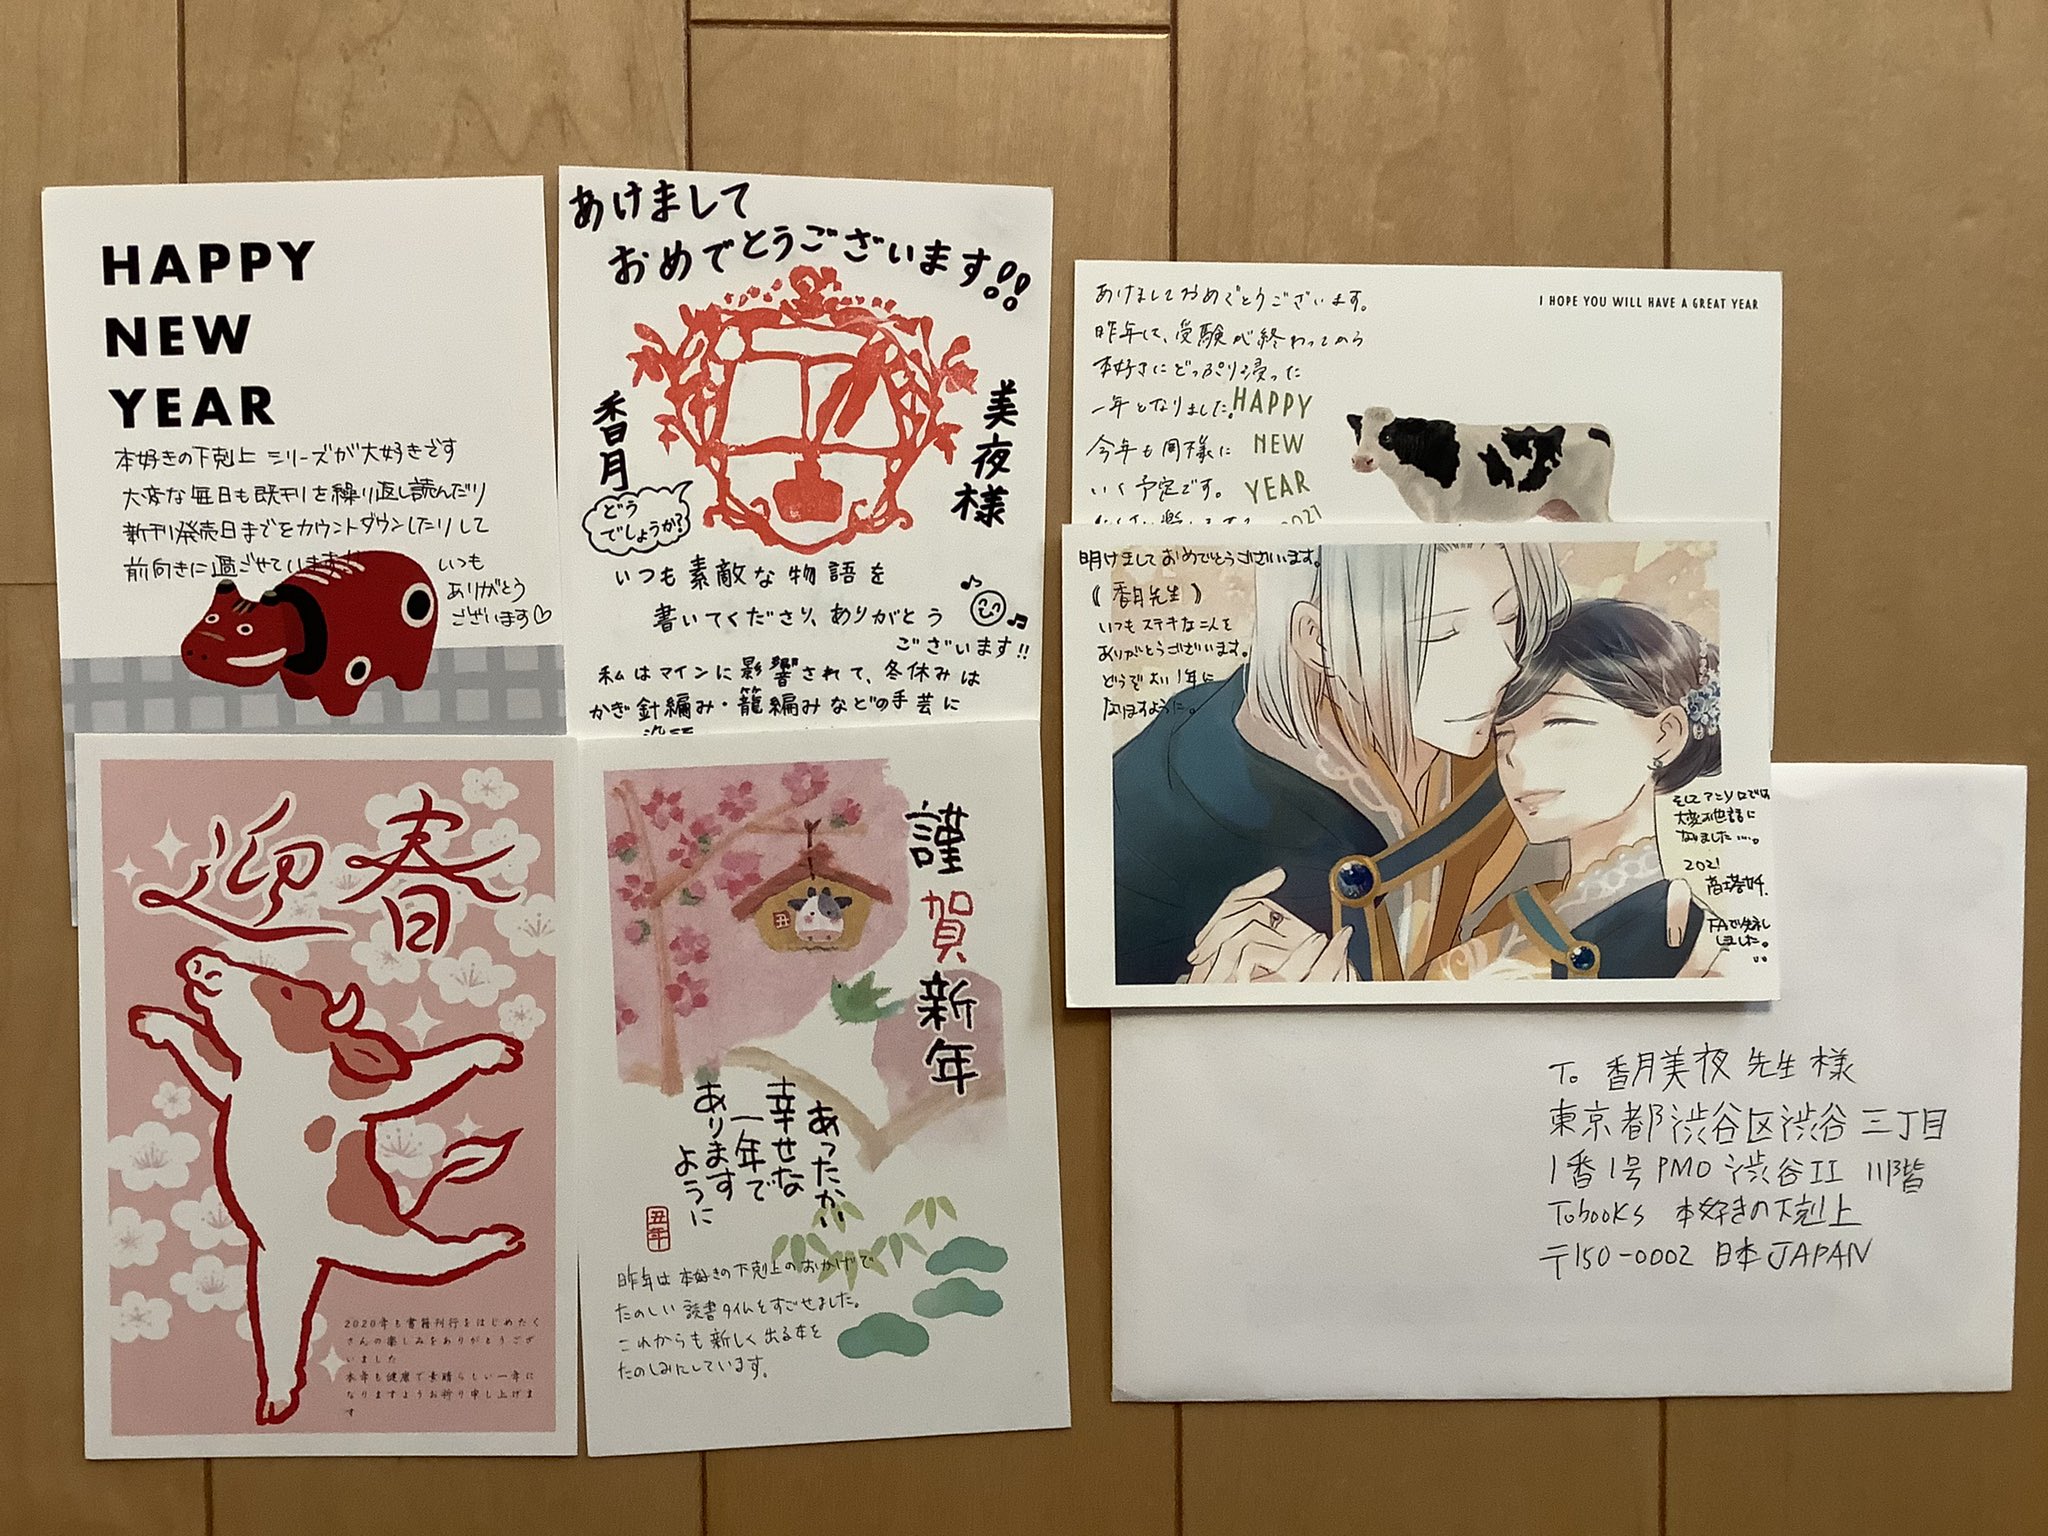 HAPPY
NEW
YEAR
本好きの下剋上 シリーズが大好きです
大変な毎日も既刊を繰り返し読んだり
新刊発売日までをカウントダウンしたりして
前向きに過ごせています
いつも
ありがとう
ございます♡
あけまして
おめでとうございます!!
美夜様
香月
どう
でしょうか?
いつも素敵な物語を
書いてくださり、ありがとう
ございます!!
私はマインに影響されて、冬休みは
かぎ針編み・籠編みなどの手芸に
あけましておめでとうございます。
昨年は、受験が終わってから
本好きにどっぷり浸った
一年となりました。
今年も同様に
いく予定です。
I HOPE YOU WILL HAVE A GREAT YEAR
HAPPY
NEW
YEAR
2021
明けましておめでとうございます。
《香月先生》
いつもステキな二人を
ありがとうございます。
どうぞよい1年に
なりますように。
そしてアンソロでは
大変お世話に
なりました…。
2021
FAで失礼
しました。
迎春
2020年も書籍刊行をはじめたく
さんの楽しみをありがとうござ
いました
本年も健康で素晴らしい一年に
なりますようお祈り申し上げま
す
謹賀新年
丑
あったかい
幸せな
一年で
あります
ように
丑年
昨年は本好きの下剋上のおかげで
たのしい読書タイムをすごせました。
これからも新しく出る本を
たのしみにしています。
To 香月美夜 先生 様
東京都渋谷区渋谷 三丁目
1番1号 PMO 渋谷II 11階
Tobooks 本好きの下剋上
〒150-0002 日本 JAPAN